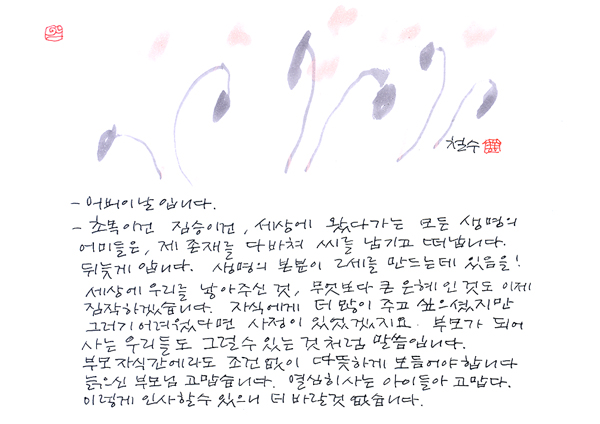 철수
- 어버이날입니다.
- 초목이건 짐승이건, 세상에 왔다가는 모든 생명의
어미들은, 제 존재를 다바쳐 씨를 남기고 떠납니다.
뒤늦게 압니다. 생명의 본분이 2세를 만드는데 있음을!
세상에 우리를 낳아주신 것, 무엇보다 큰 은혜인 것도 이제
짐작하겠습니다. 자식에게 더 많이 주고 싶으셨지만
그러기 어려웠다면 사정이 있었겠지요. 부모가 되어
사는 우리들도 그럴수 있는 것처럼 말씀입니다.
부모자식간에라도 조건없이 따뜻하게 보듬어야 합니다
늙으신 부모님 고맙습니다. 열심히 사는 아이들아 고맙다.
이렇게 인사할수 있으니 더 바랄것 없습니다.